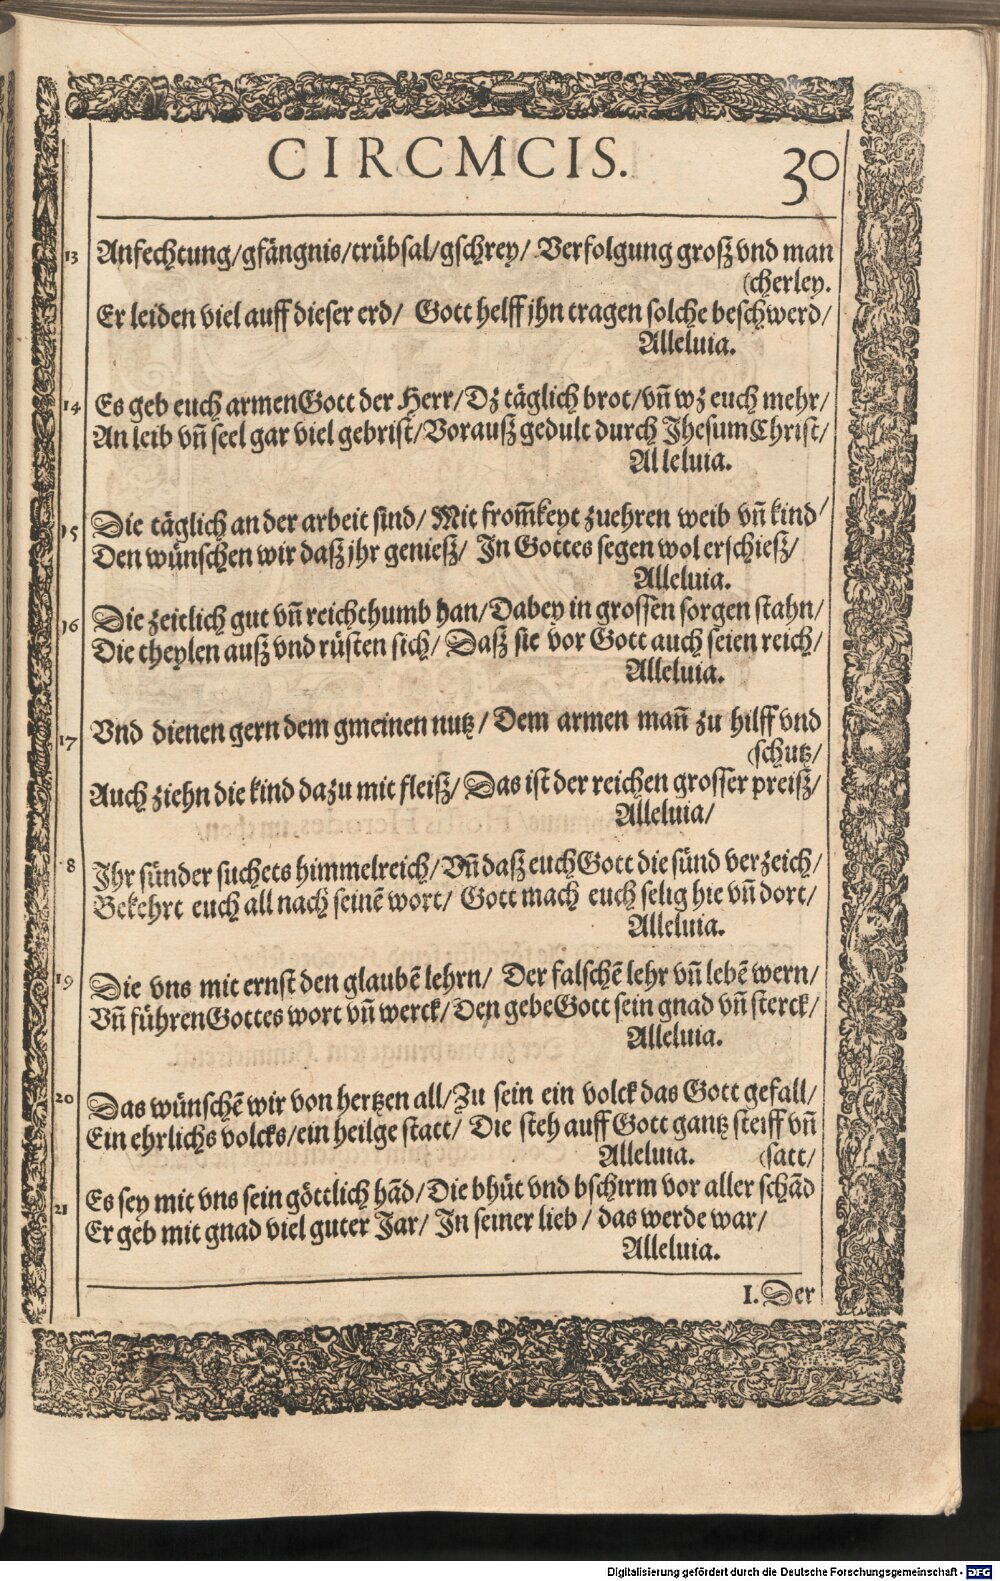 CIRCMCIS. 30
13 Anfechtung/gfängnis/trübsal/gschrey/ Verfolgung groß vnd man
(cherley.
Er leiden viel auff dieser erd/ Gott helff jhn tragen solche beschwerd/
Alleluia.
14 Es geb euch armen Gott der Herr/Dz täglich brot/vn̄ wz euch mehr/
An leib vn̄ seel gar viel gebrist/Vorauß gedult durch Jhesum Christ/
Alleluia.
15 Die täglich an der arbeit sind/ Mit from̄keyt zuehren weib vn̄ kind/
Den wünschen wir daß jhr genieß/ In Gottes segen wol erschieß/
Alleluia.
16 Die zeitlich gut vn̄ reichthumb han/Dabey in grossen sorgen stahn/
Die theylen auß vnd rüsten sich/ Daß sie vor Gott auch seien reich/
Alleluia.
17 Vnd dienen gern dem gmeinen nutz/ Dem armen man̄ zu hilff vnd
(schutz/
Auch ziehn die kind dazu mit fleiß/ Das ist der reichen grosser preiß/
Alleluia/
8 Jhr sünder suchets himmelreich/Vn̄ daß euch Gott die sünd verzeich/
Bekehrt euch all nach seinē wort/ Gott mach euch selig hie vn̄ dort/
Alleluia.
19 Die vns mit ernst den glaubē lehrn/ Der falschē lehr vn̄ lebē wern/
Vn̄ führen Gottes wort vn̄ werck/Den gebe Gott sein gnad vn̄ sterck/
Alleluia.
20 Das wünschē wir von hertzen all/Zu sein ein volck das Gott gefall/
Ein ehrlichs volcks/ein heilge statt/ Die steh auff Gott gantz steiff vn̄
Alleluia. (satt/
21 Es sey mit vns sein göttlich hād/Die bhüt vnd bschirm vor aller schād
Er geb mit gnad viel guter Jar/ In seiner lieb/ das werde war/
Alleluia.
I. Der
Digitalisierung gefördert durch die Deutsche Forschungsgemeinschaft - DFG